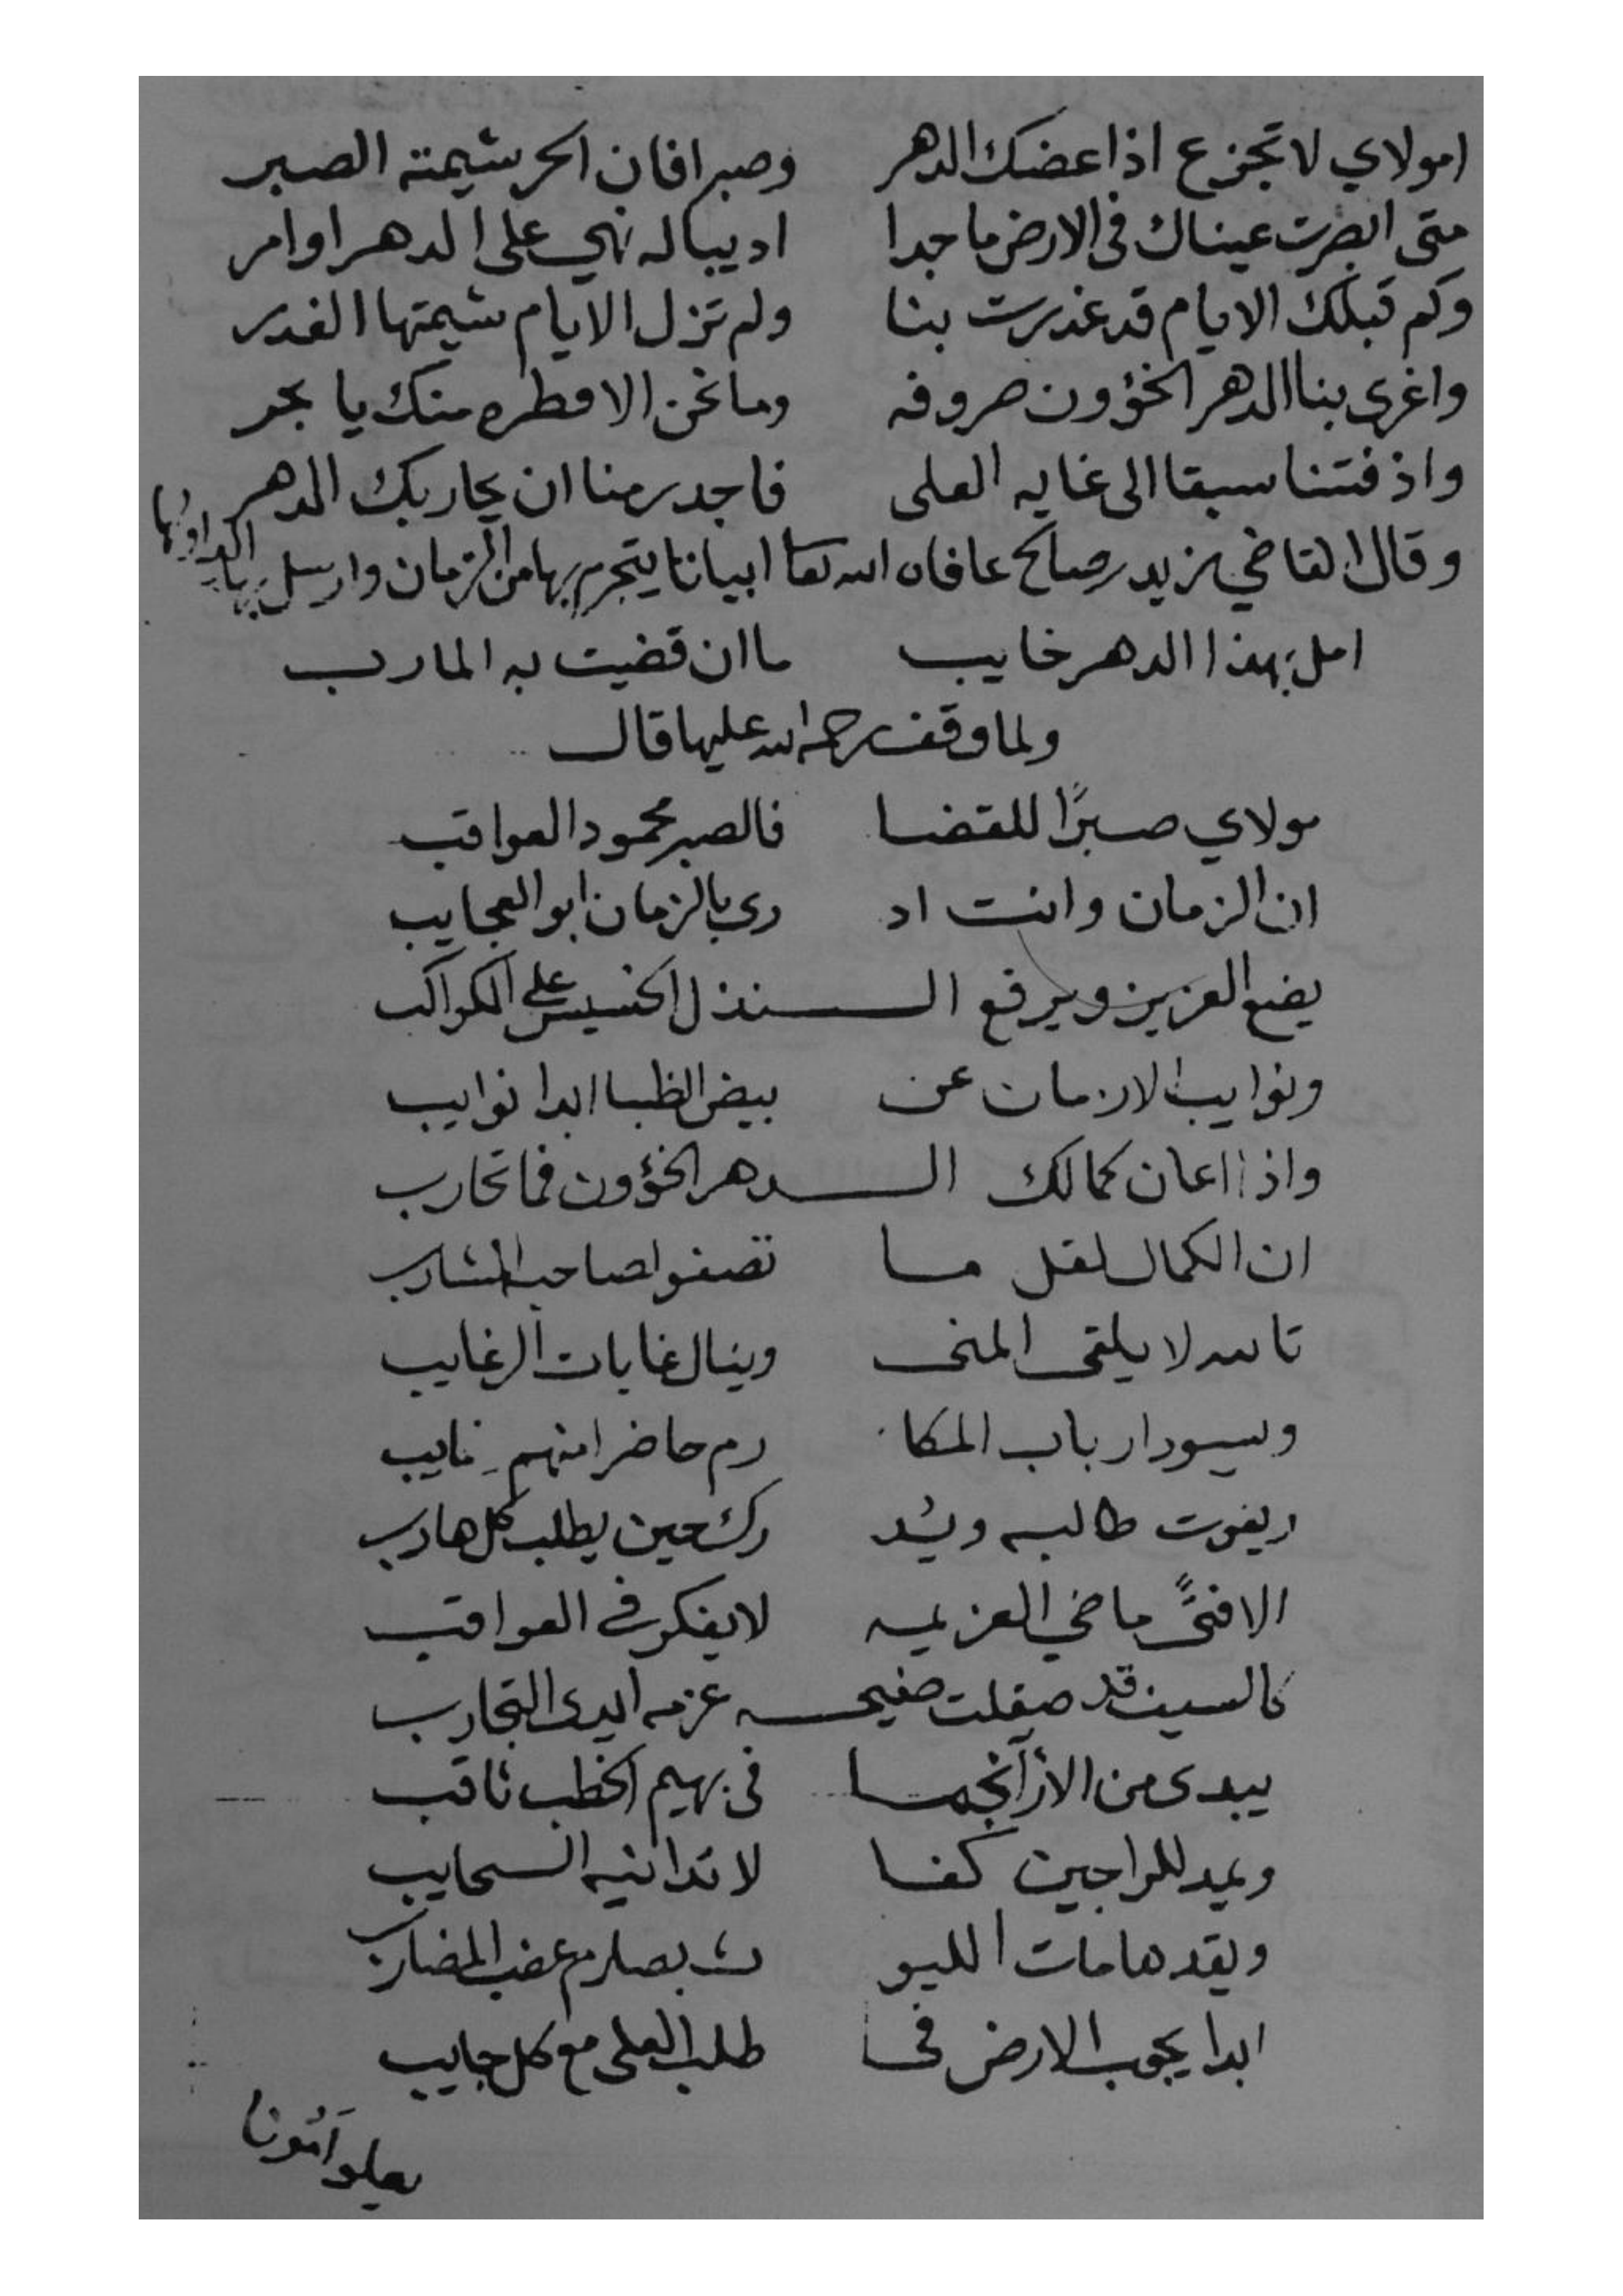 امولاي لا تجزع اذا عضك الدهر وصبرا فان الحر شيمته الصبر
متى ابصرت عيناك فى الارض ماجدا اديبا له نهي على الدهر او امر
وكم قبلك الايام قد غدرت بنا ولم تزل الايام شيمتها الغدر
واغرى بنا الدهر الخؤون صروفه وما نحن الا قطره منك يا بحر
واذ فتنا سبقا الى غايه العلى فاجدر منا ان يحاربك الدهر
وقال القاضي زيد صالح عافاه الله تعا ابياتا يتجرم بها من الزمان وارسل بها اليه اولها
امل بهذا الدهر خايب ما ان قضيت به المارب
ولما وقف رحمه الله عليها قال
مولاي صبرًا للقضا فالصبر محمود العواقب
ان الزمان وانت اد رى بالزمان ابو العجايب
يضع العزيز ويرفع الـ ـنذل الخسيس على الكواكب
ونوايب الازمان عن بيض الظبا ابدا نوايب
واذا اعان كمالك الـ ـدهر الخؤون فما تحارب
ان الكمال لقل ما تصفو لصاحبه المشارب
تالله لا يلقى المنى وينال غايات الرغايب
ويسود ارباب المكا رم حاضرا منهم وغايب
ويفوت طالبه ويُد رك حين يطلب كل هارب
الا فتىً ماضي العزيمه لا يفكر فى العواقب
كالسيف قد صقلت صفيحـ ـه عزمه ايدى التجارب
يبدى من الارآ انجما فى بهيم الخطب ثاقب
ويمد للراجين كفا لا تدانيه السحايب
ويقد هامات الليو ث بصارم عضب المضارب
ابدا يجوب الارض فى طلب العلى مع كل جايب
يعلو